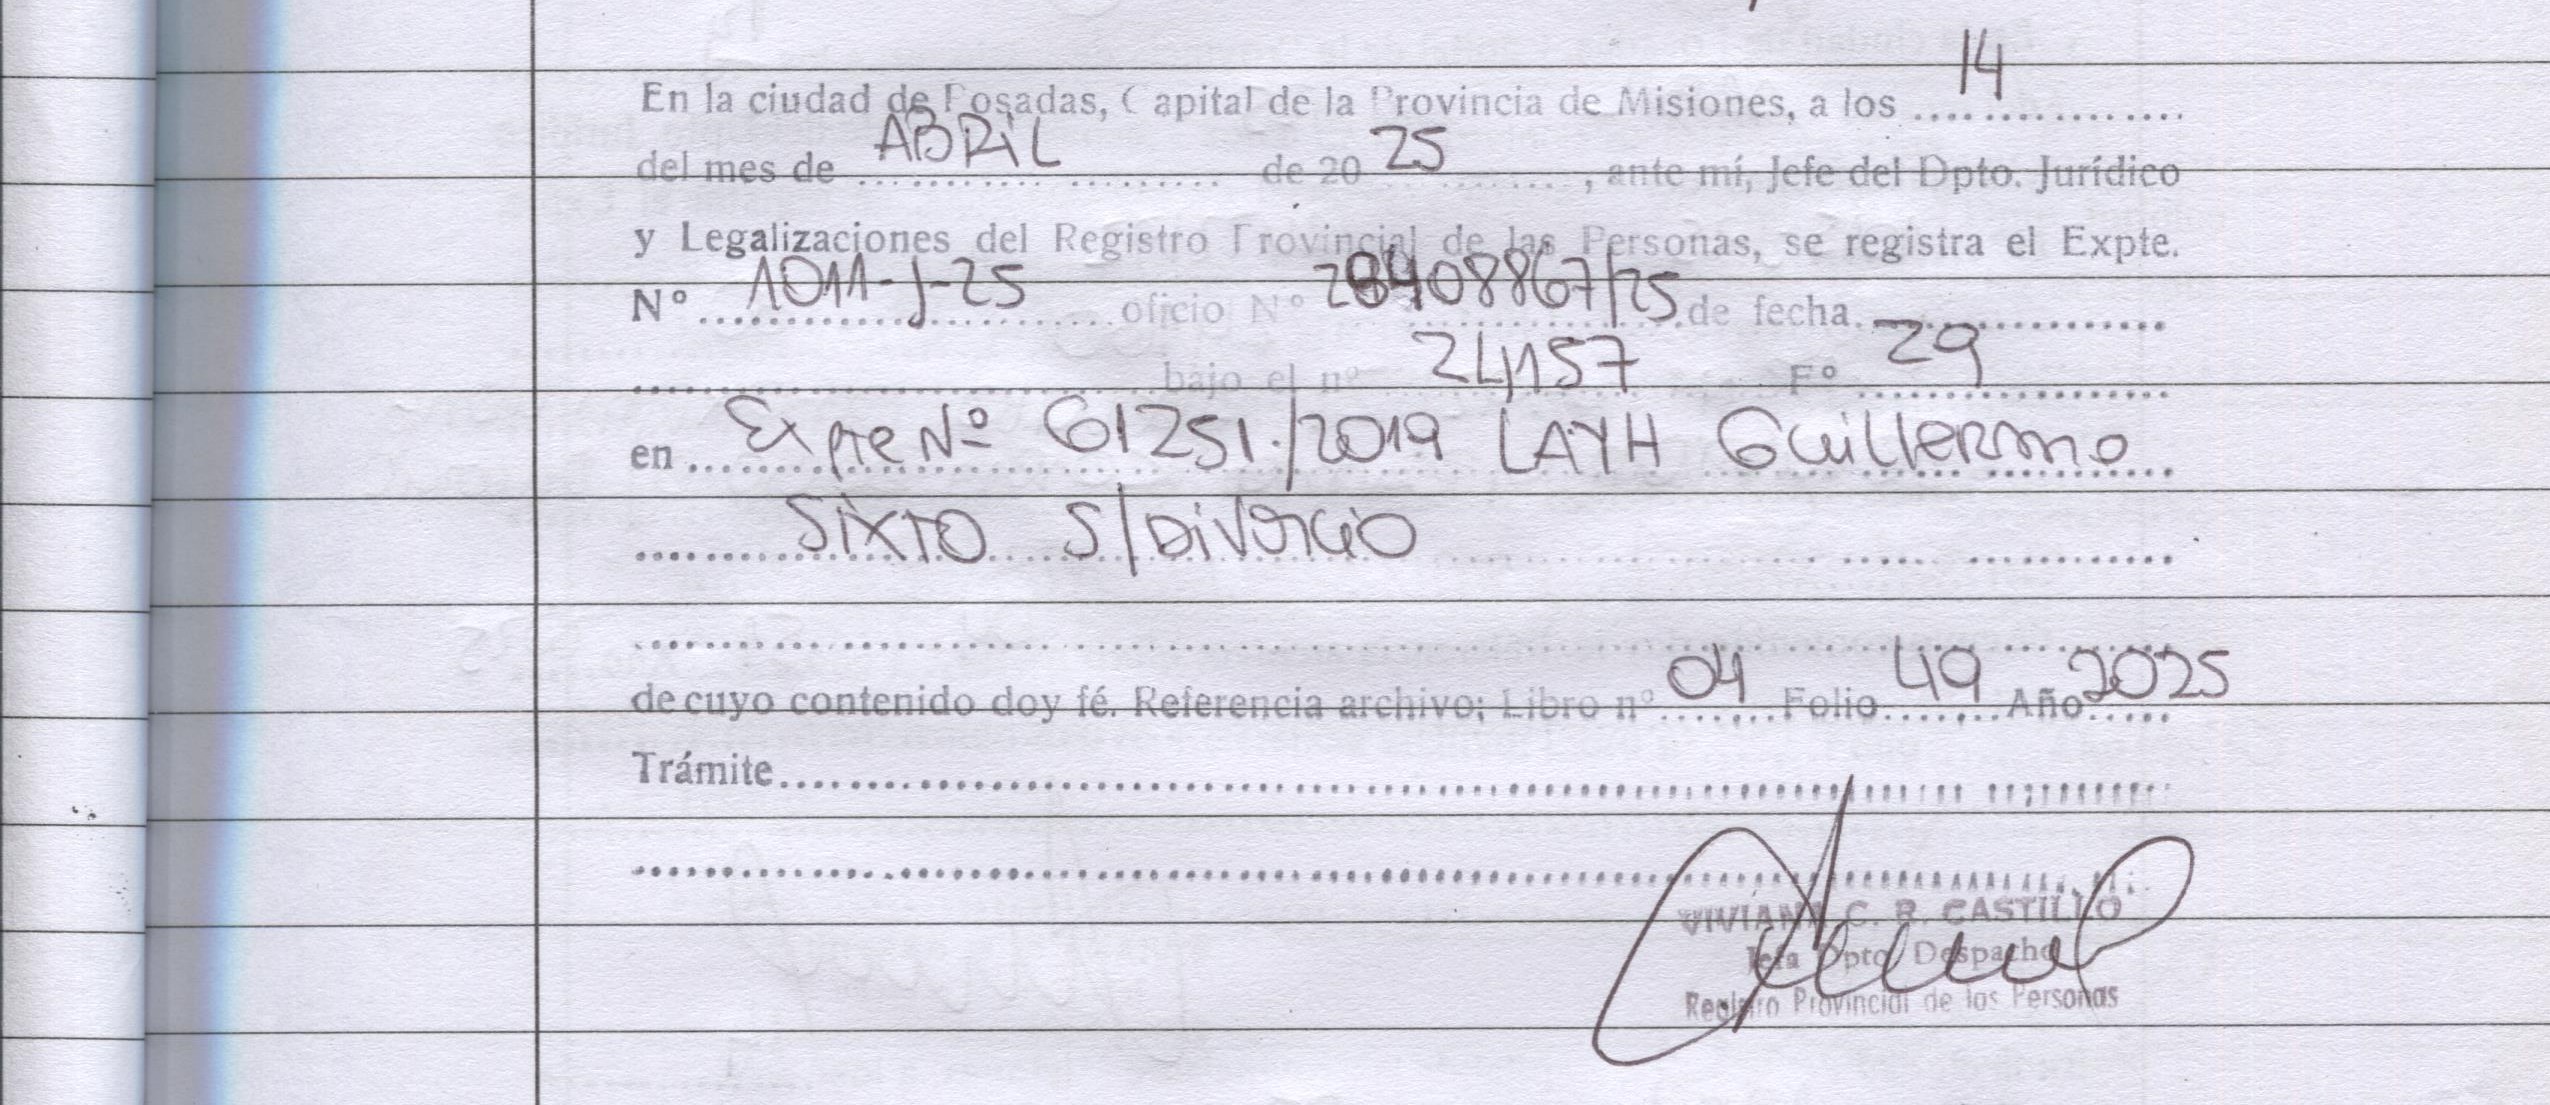 En la ciudad de Posadas, Capital de la Provincia de Misiones, a los 14
del mes de ABRIL de 20 25, ante mí, Jefe del Dpto. Jurídico
y Legalizaciones del Registro Provincial de las Personas, se registra el Expte.
Nº 1011-J-25 oficio Nº 28408867/25 de fecha
bajo el nº 24157 Fº 29
en Expte Nº 61251./2019 LAYH Guillermo
SIXTO S/DIVORCIO
de cuyo contenido doy fé. Referencia archivo; Libro nº 04 Folio 49 Año 2025
Trámite
VIVIANA C. R. CASTILLO
Jefa Dpto Despacho
Registro Provincial de los Personas